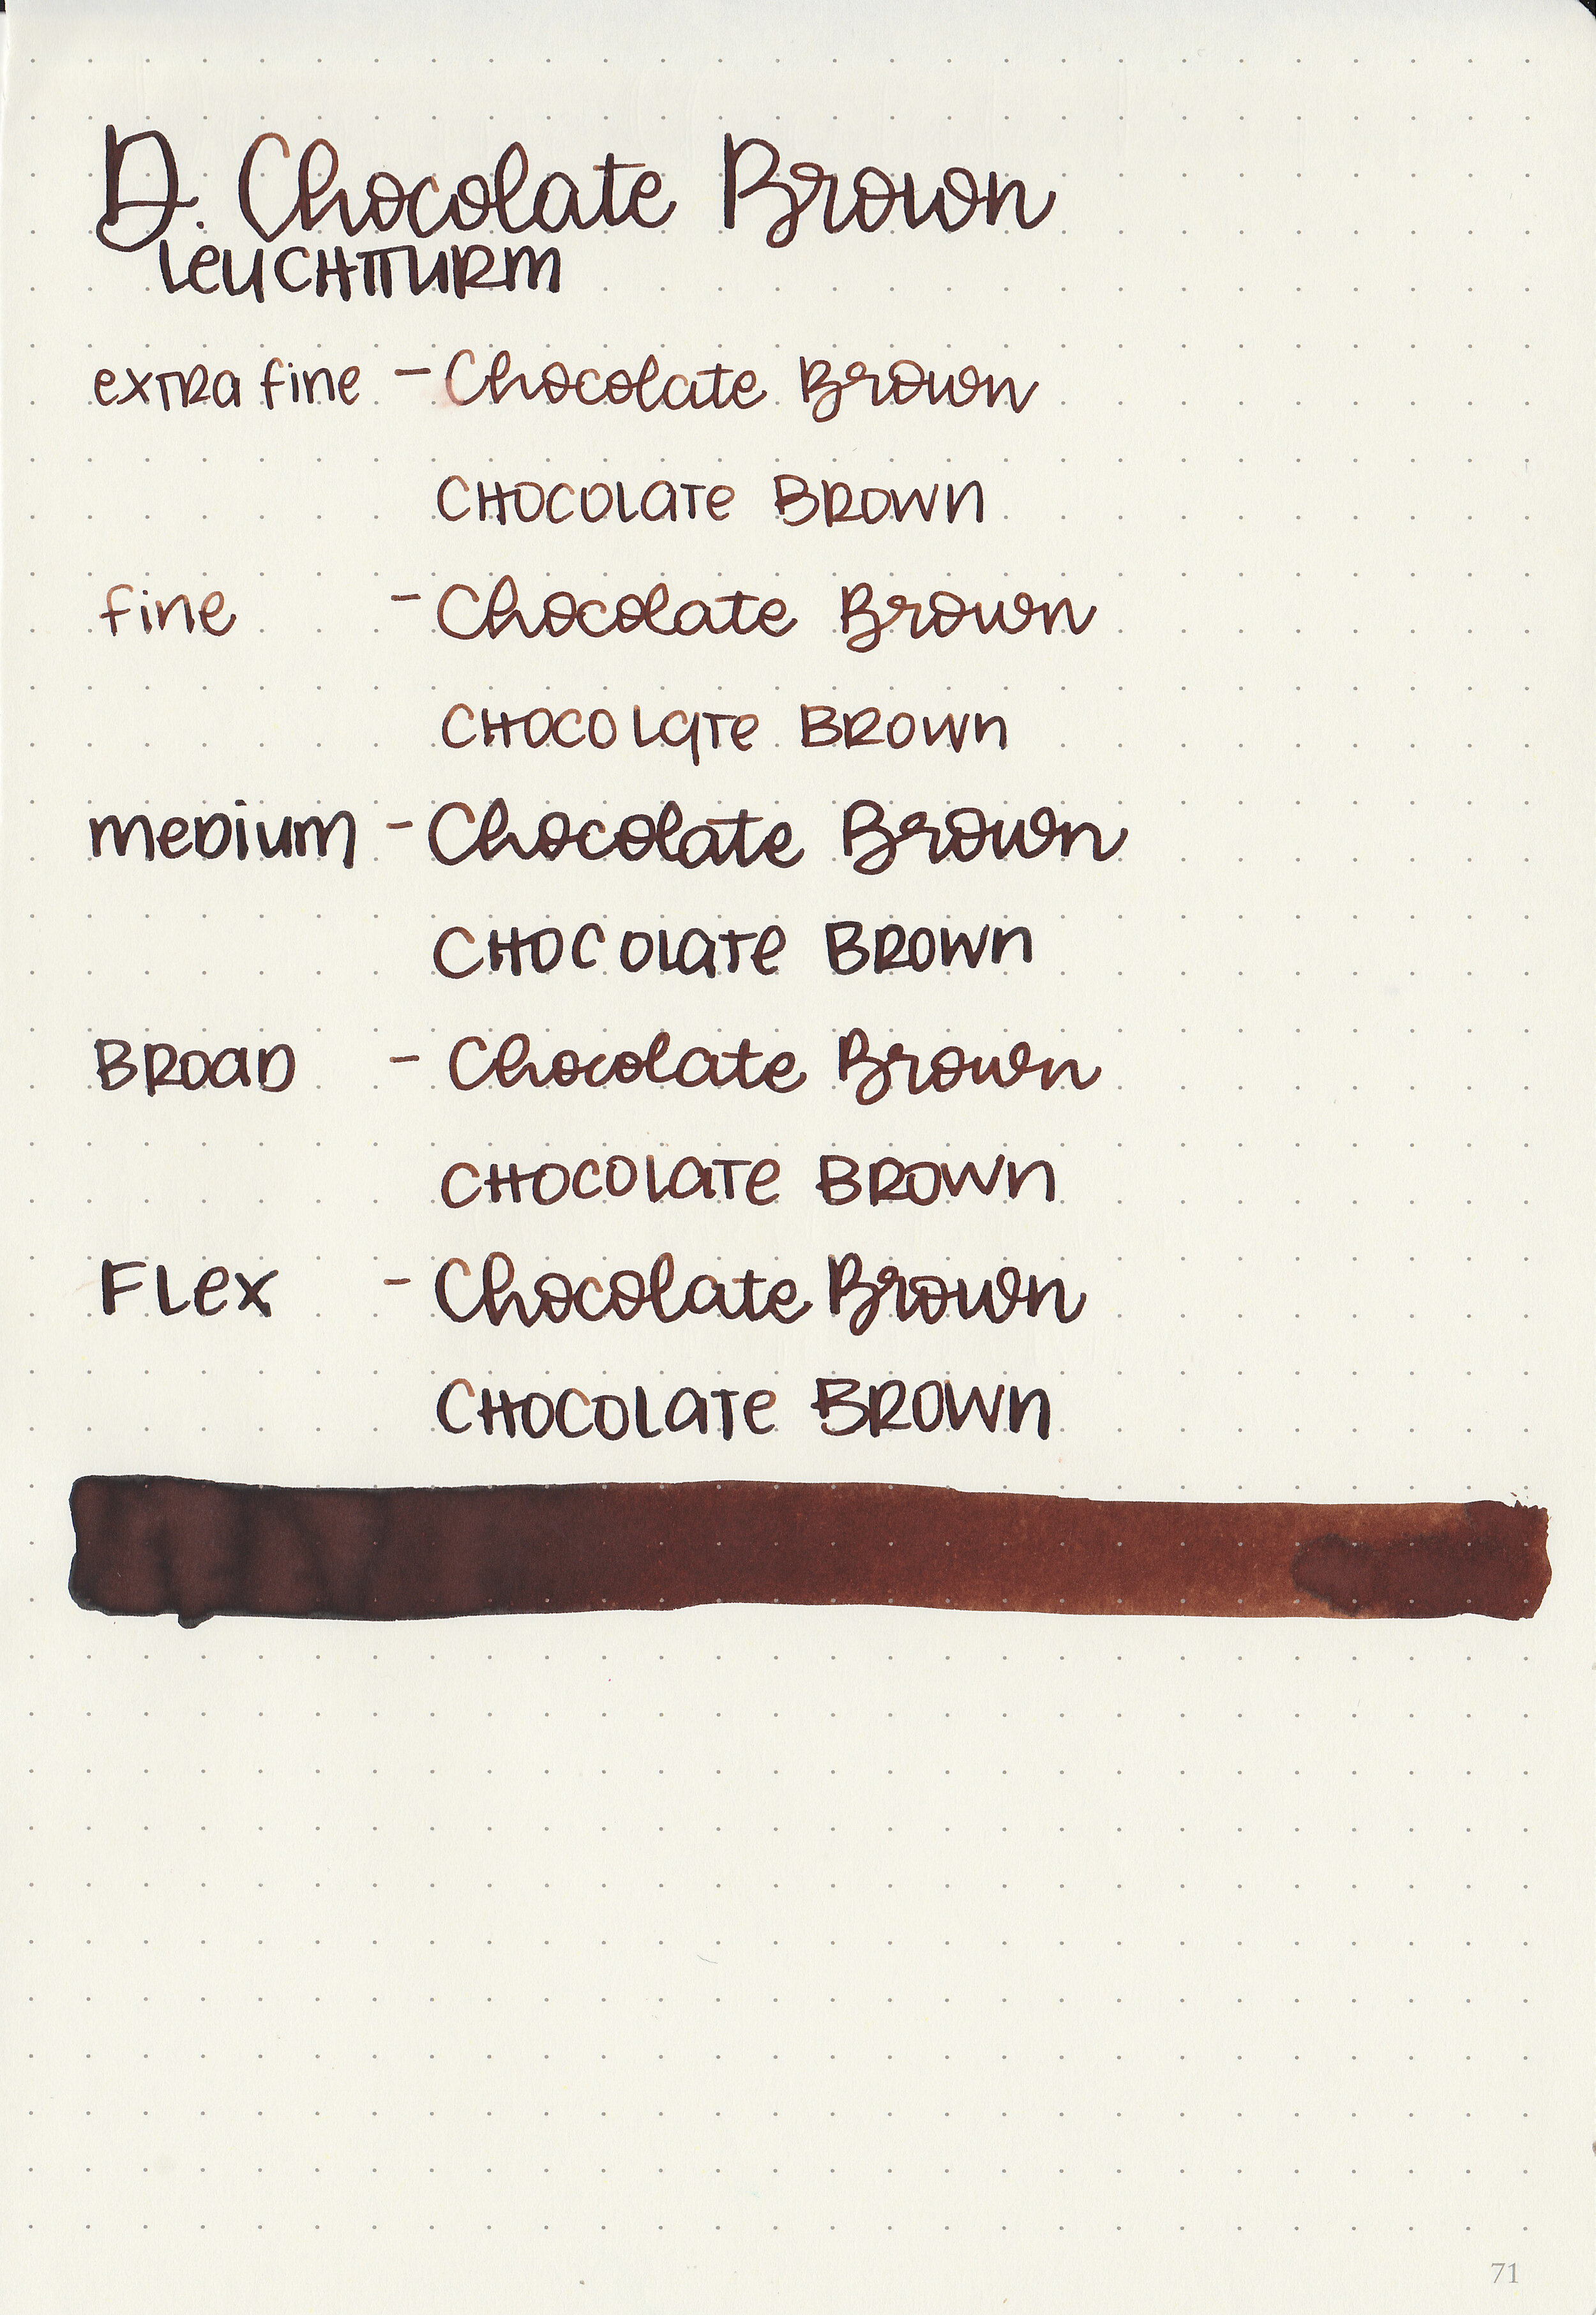 D. Chocolate Brown
LeUCHTTURM
exTRa fine - Chocolate Brown
CHOCOLaTe BROWn
fine - Chocolate Brown
CHOCOLaTe BROWn
meDium - Chocolate Brown
CHOCOLaTe BROWn
BROaD - Chocolate Brown
CHOCOLaTe BROWn
FLex - Chocolate Brown
CHOCOLaTe BROWn
71